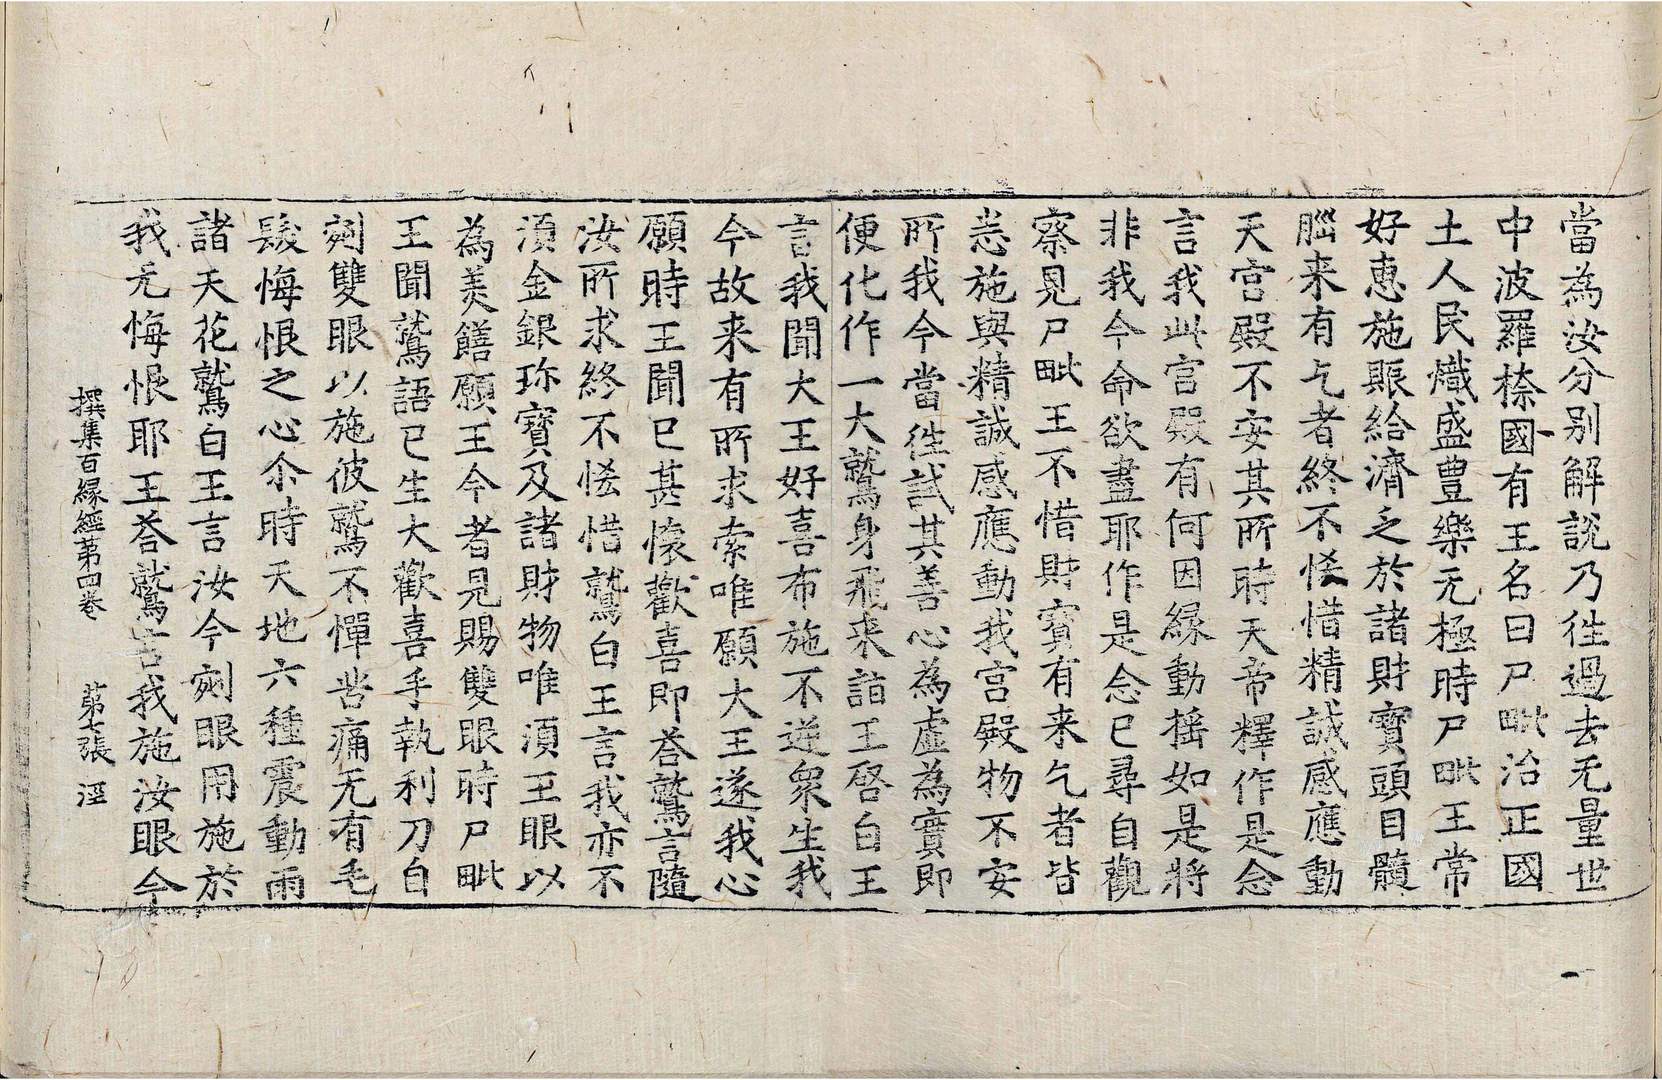 當為汝分別解說乃往過去无量世
中波羅㮈國有王名曰尸毗治正國
土人民熾盛豊樂无極時尸毗王常
好惠施賑給濟乏於諸財寳頭目髓
腦来有乞者終不悋惜精誠感應動
天宫殿不安其所時天帝釋作是念
言我此宫殿有何因緣動揺如是將
非我今命欲盡耶作是念已尋自觀
察見尸毗王不惜財寳有来乞者皆
悉施與精誠感應動我宫殿物不安
所我今當徃試其善心為虛為實即
便化作一大鷲身飛来詣王啓白王
言我聞大王好喜布施不逆衆生我
今故来有所求索唯願大王遂我心
願時王聞已甚懷歡喜即荅鷲言隨
汝所求終不悋惜鷲白王言我亦不
湏金銀珎寳及諸財物唯湏王眼以
為美饍願王今者見賜雙眼時尸毗
王聞鷲語已生大歡喜手執利刀自
剜雙眼以施彼鷲不憚苦痛无有毛
髮悔恨之心尒時天地六種震動雨
諸天花鷲白王言汝今剜眼用施於
我无悔恨耶王荅鷲言我施汝眼今
撰集百緣經苐四卷 苐七張 涇